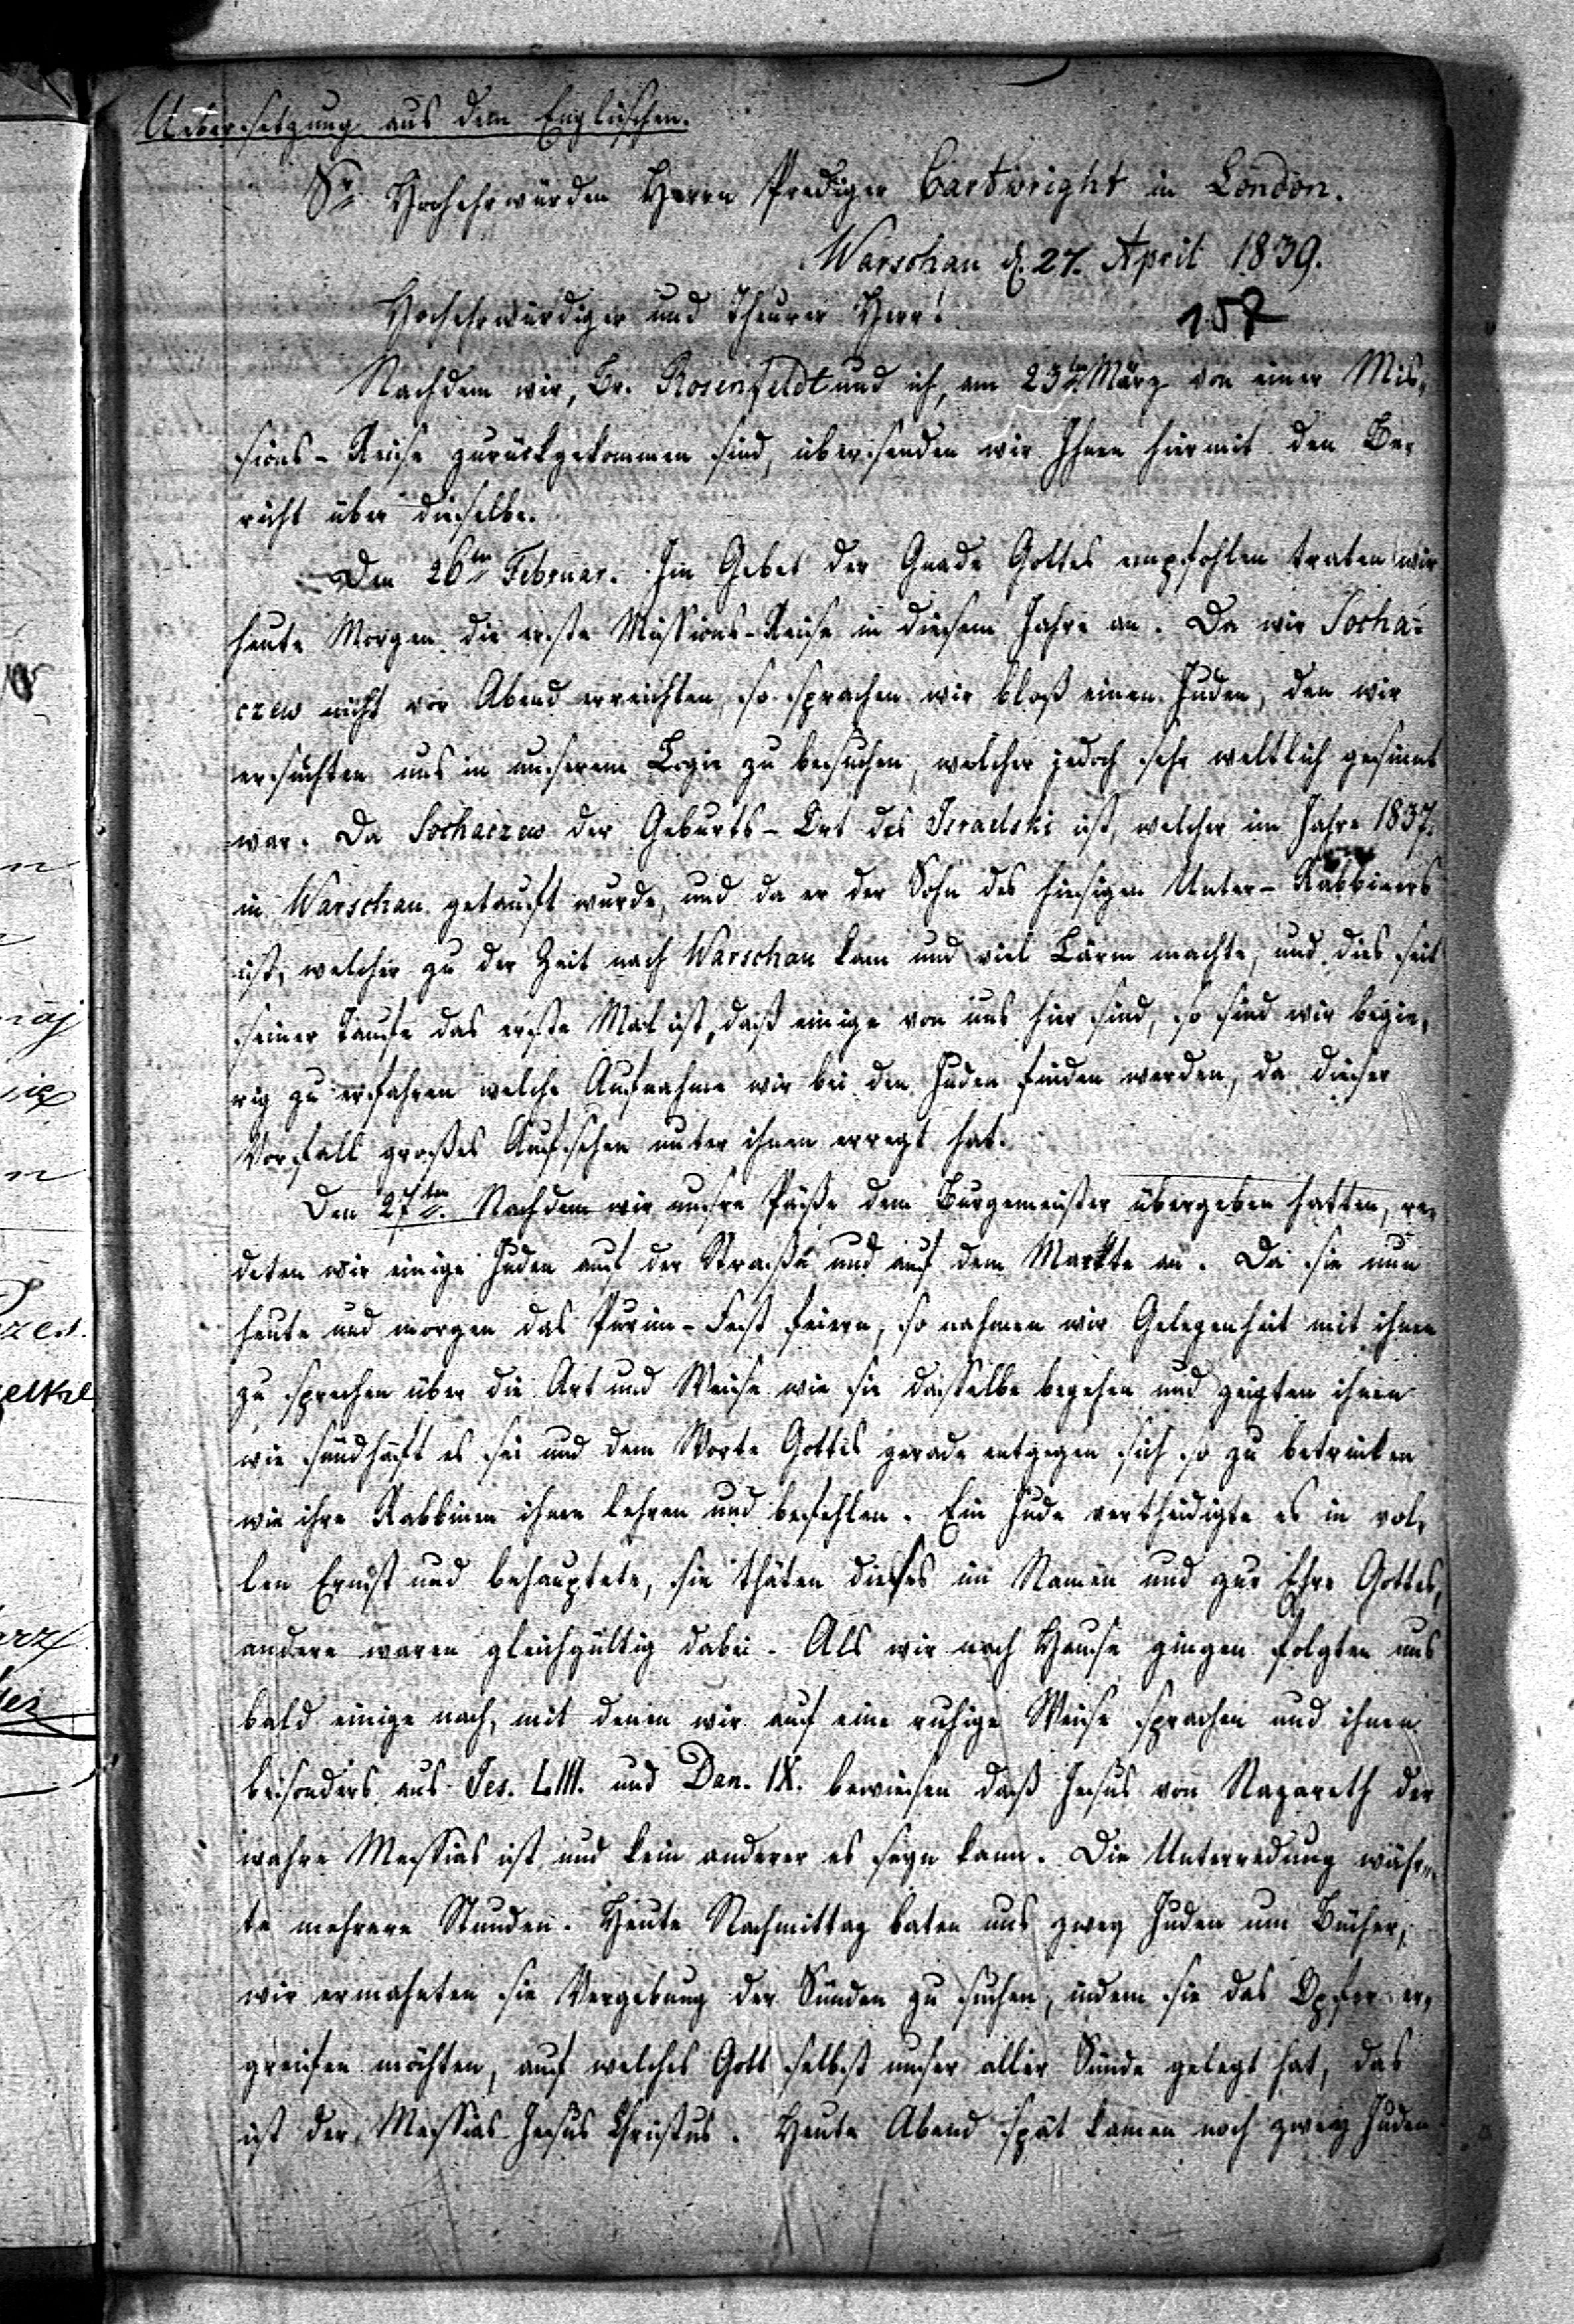 Uebersetzung aus dem Englischen.
Sr. Hochehrwürden Herrn Prediger Cartwright in London.
Warschau d. 27. April 1839.
Hochehrwürdiger und Theurer Herr!
158
Nachdem wir, Br. Rosenfeldt und ich, am 23ten März von einer Mis,
sions-Reise zurückgekommen sind, übersenden wir Ihnen hiermit den Be,
richt über dieselbe.
Den 26ten Februar. Im Gebet der Gnade Gottes empfohlen traten wir
heute Morgen die erste Missions-Reise in diesem Jahre an. Da wir Socha=
czew nicht vor Abend erreichten, so sprachen wir bloß einen Juden, den wir
ersuchten uns in unserem Logie zu besuchen, welcher jedoch sehr weltlich gesinnt
war. Da Sochaczew der Geburts-Ort des Israelski ist, welcher im Jahre 1837.
in Warschau getauft wurde, und da er der Sohn des hiesigen Unter-Rabbiners
ist, welcher zu der Zeit nach Warschau kam und viel Lärm machte, und dies seit
seiner Taufe das erste Mal ist, daß einige von uns hier sind, so sind wir begie,
rig zu erfahren welche Aufnahme wir bei den Juden finden werden, da dieser
Vorfall großes Aufsehen unter ihnen erregt hat.
Den 27ten. Nachdem wir unsre Päße dem Burgemeister übergeben hatten, re,
deten wir einige Juden auf der Straße und auf dem Markte an. Da sie nun
heute und morgen das Purim-Fest feiern, so nahmen wir Gelegenheit mit ihnen
zu sprechen über die Art und Weise wie sie dasselbe begehen und zeigten ihnen
wie sündhaft es sei und dem Worte Gottes gerade entgegen sich so zu betrinken
wie ihre Rabbinen ihnen lehren und befehlen. Ein Jude vertheidigte es in vol,
len Ernst und behauptete, sie thäten dieses im Namen und zur Ehre Gottes,
andere waren gleichgültig dabei. Als wir nach Hause gingen folgten uns
bald einige nach, mit denen wir auf eine ruhige Weise sprachen und ihnen
besonders aus Jes. LIII. und Dan. IX. bewiesen daß Jesus von Nazareth der
wahre Messias ist und kein anderer es seyn kann. Die Unterredung währ,
te mehrere Stunden. Heute Nachmittag baten uns zwey Juden um Bücher,
wir ermahnten sie Vergebung der Sünden zu suchen, indem sie das Opfer er,
greifen möchten, auf welches Gott selbst unser aller Sünde gelegt hat, das
ist der Messias Jesus Christus. Heute Abend spät kamen noch zwey Juden